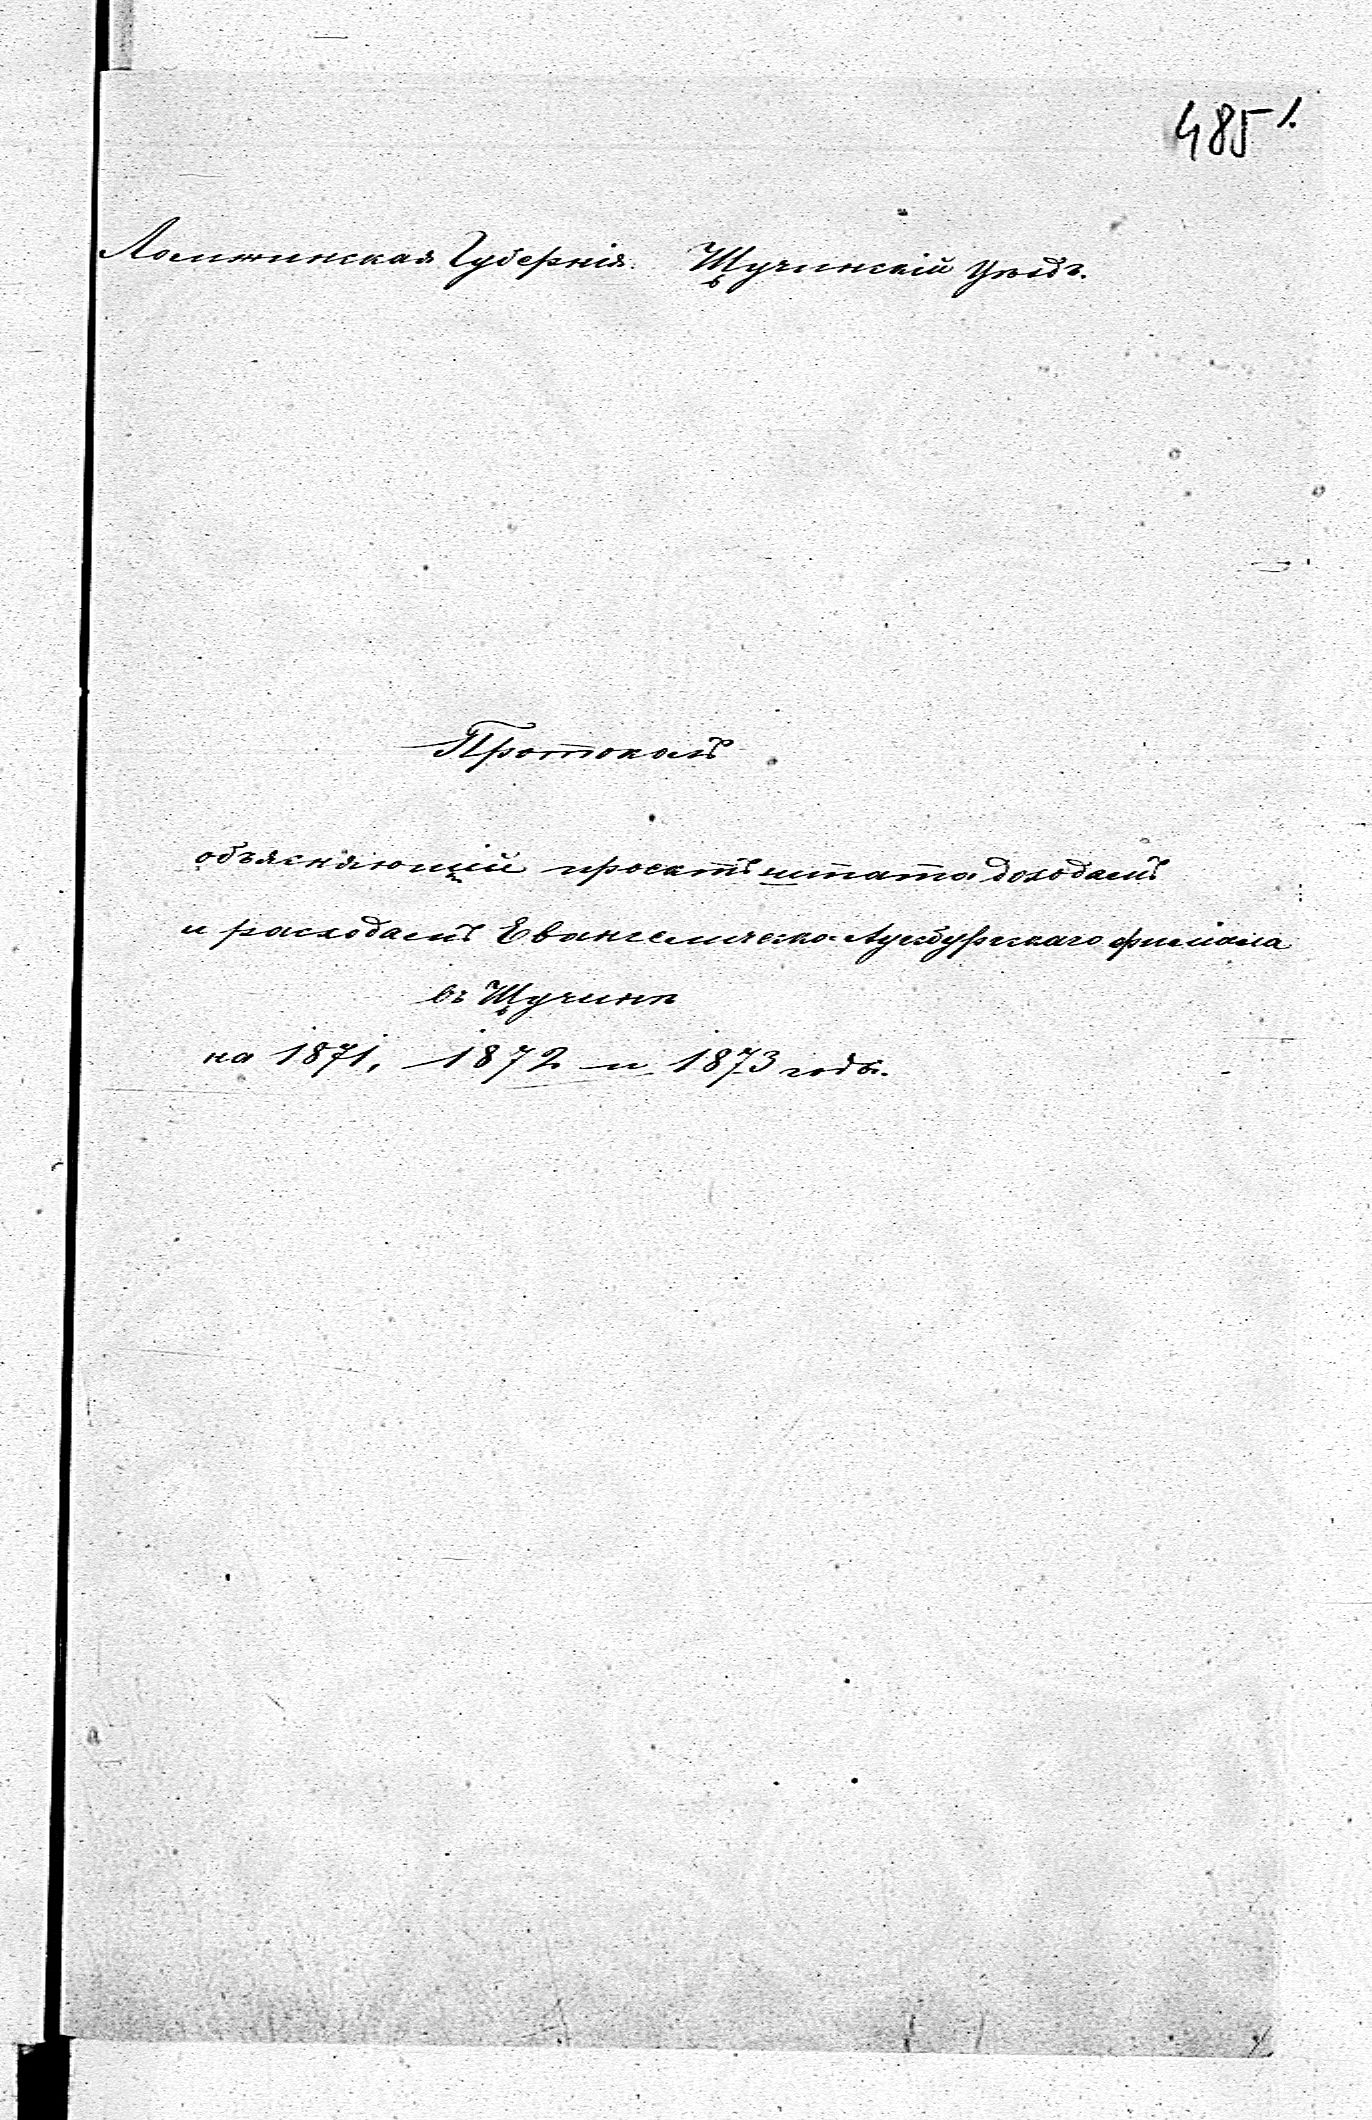 485 1.
Ломжинская Губернія. Щучинскій Уѣздъ.
Протоколъ
объясняющій проектъ штата доходамъ
и расходамъ Евангелическо-Аугсбургскаго филіала
въ Щучинѣ
на 1871, 1872 и 1873 годы.